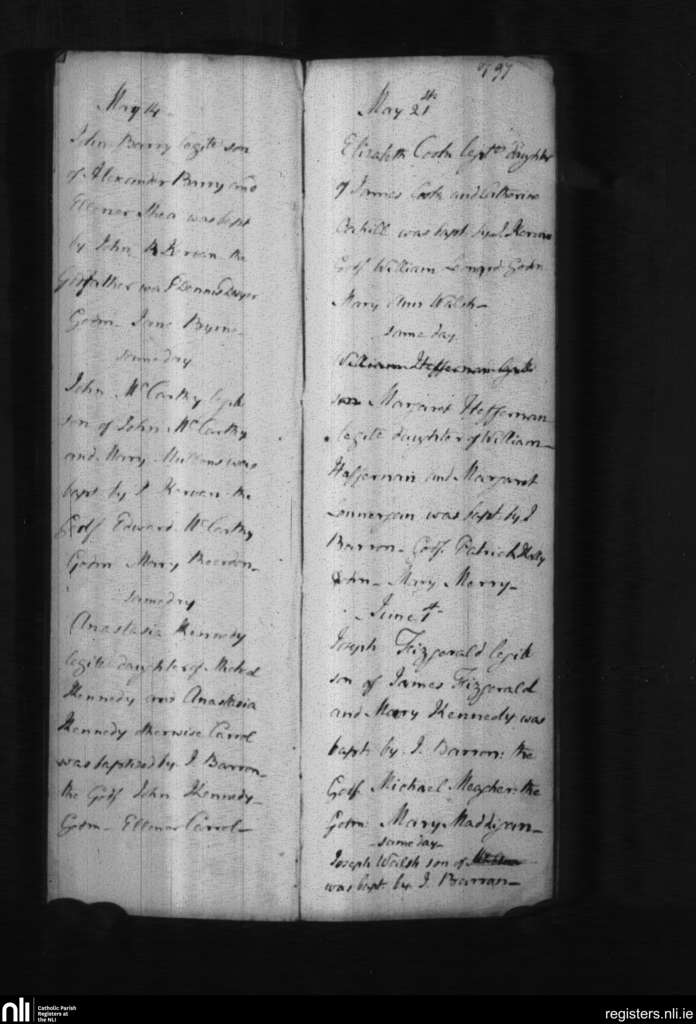 May 14
John Barry legite son
of Alexander Barry and
Ellener Shea was bapt
by John Kirwan the
Godfather was Dennis Dwyer
Godm - Jane Byrne -
same day
John McCarthy legite
son of John McCarthy
and Mary Mullens was
bapt by J Kirwan the
Godf Edward McCarthy
Godm Mary Reardon -
same day
Anastasia Kennedy
legite daughter of Michael
Kennedy and Anastasia
Kennedy otherwise Carrol
was baptised by J. Barron -
the Godf John Kennedy -
Godm - Ellener Carrol -
of 97
May 21st
Elizabeth daughter
of James and Catherine
was bapt by J Kirwan
Godf William Godm
Mary Ann Walsh -
same day
William Heffernan legite
son Margaret Heffernan
legite daughter of William -
Heffernan and Margaret
Lonnergan was bapt by J
Barron - Godf. Patrick
Godm - Mary Merry -
June 1st
Joseph Fitzgerald legite
son of James Fitzgerald
and Mary Kennedy was
bapt by J. Barron: the
Godf Michael Meagher: the
Godm Mary Maddigan -
same day -
Joseph Walsh son of
was bapt by J. Barron -
nli
Catholic Parish
Registers at
the NLI
registers.nli.ie